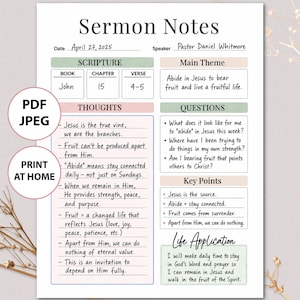 Sermon Notes
Date April 27, 2025 Speaker Pastor Daniel Whitmore
SCRIPTURE
BOOK CHAPTER VERSE
John 15 4-5
Main Theme
Abide in Jesus to bear
fruit and live a fruitful life.
THOUGHTS
- Jesus is the true vine,
we are the branches.
- Fruit can't be produced apart
from Him.
- "Abide" means stay connected
daily - not just on Sundays.
- When we remain in Him,
He provides strength, peace,
and purpose.
- Fruit = a changed life that
reflects Jesus (love, joy,
peace, patience, etc.)
- Apart from Him, we can do
nothing of eternal value.
- This is an invitation to
depend on Him fully.
QUESTIONS
• What does it look like for me
to "abide" in Jesus this week?
• Where have I been trying to
do things in my own strength?
• Am I bearing fruit that points
others to Christ?
Key Points
• Jesus is the source.
• Abide = stay connected.
• Fruit comes from surrender.
• Apart from Him, we can do nothing.
Life Application
I will make daily time to stay
in God's Word and prayer so
I can remain in Jesus and
walk in the fruit of the Spirit.
PDF
JPEG
PRINT
AT HOME